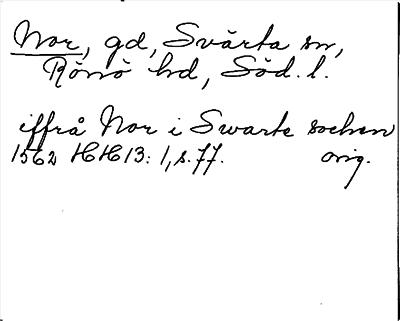 Nor, gd, Svärta sn,
Rönö hd, Söd. l.
iffrå Nor i Swarte sochen
1562 HH 13: 1, s. 77. orig.